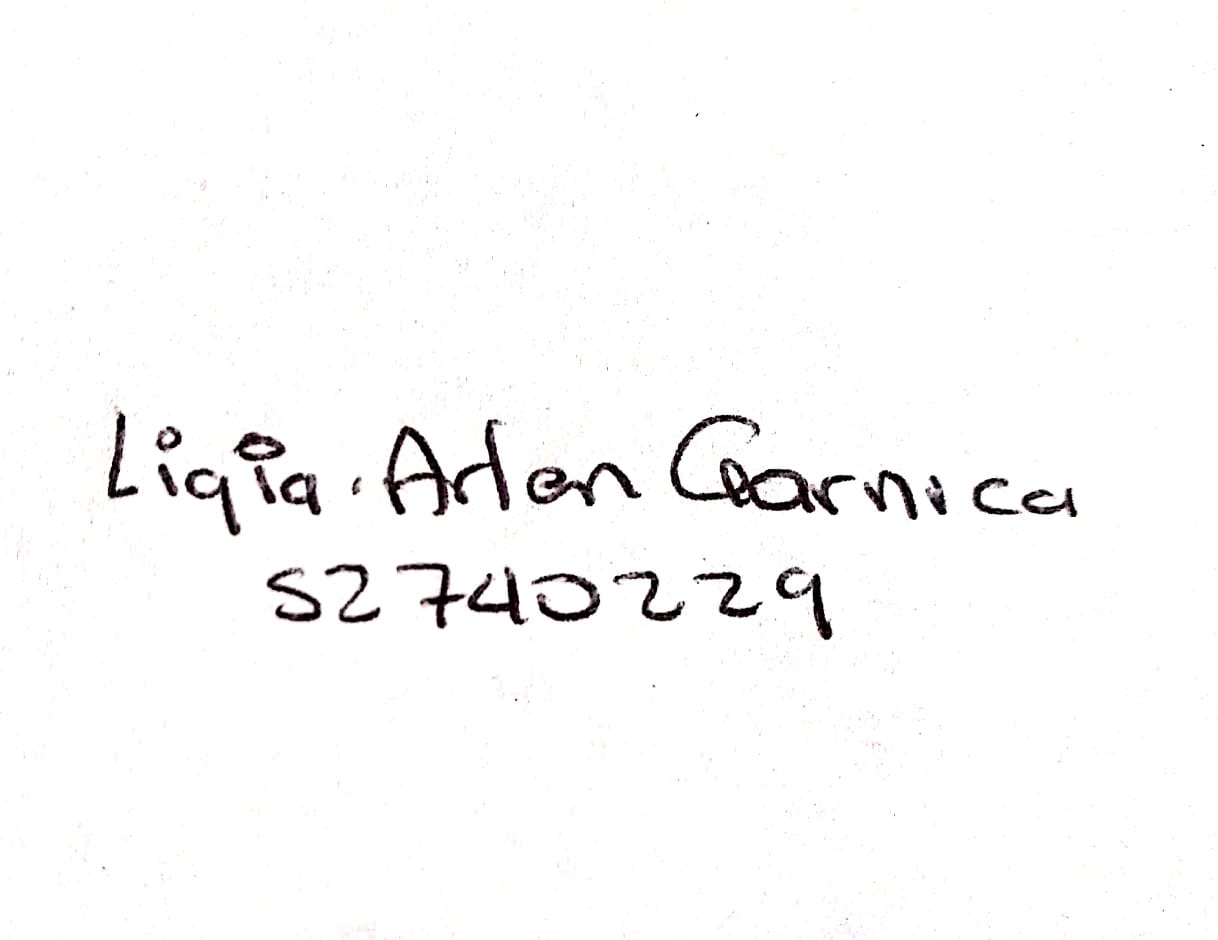 Ligia. Arlen Garnica
52740229